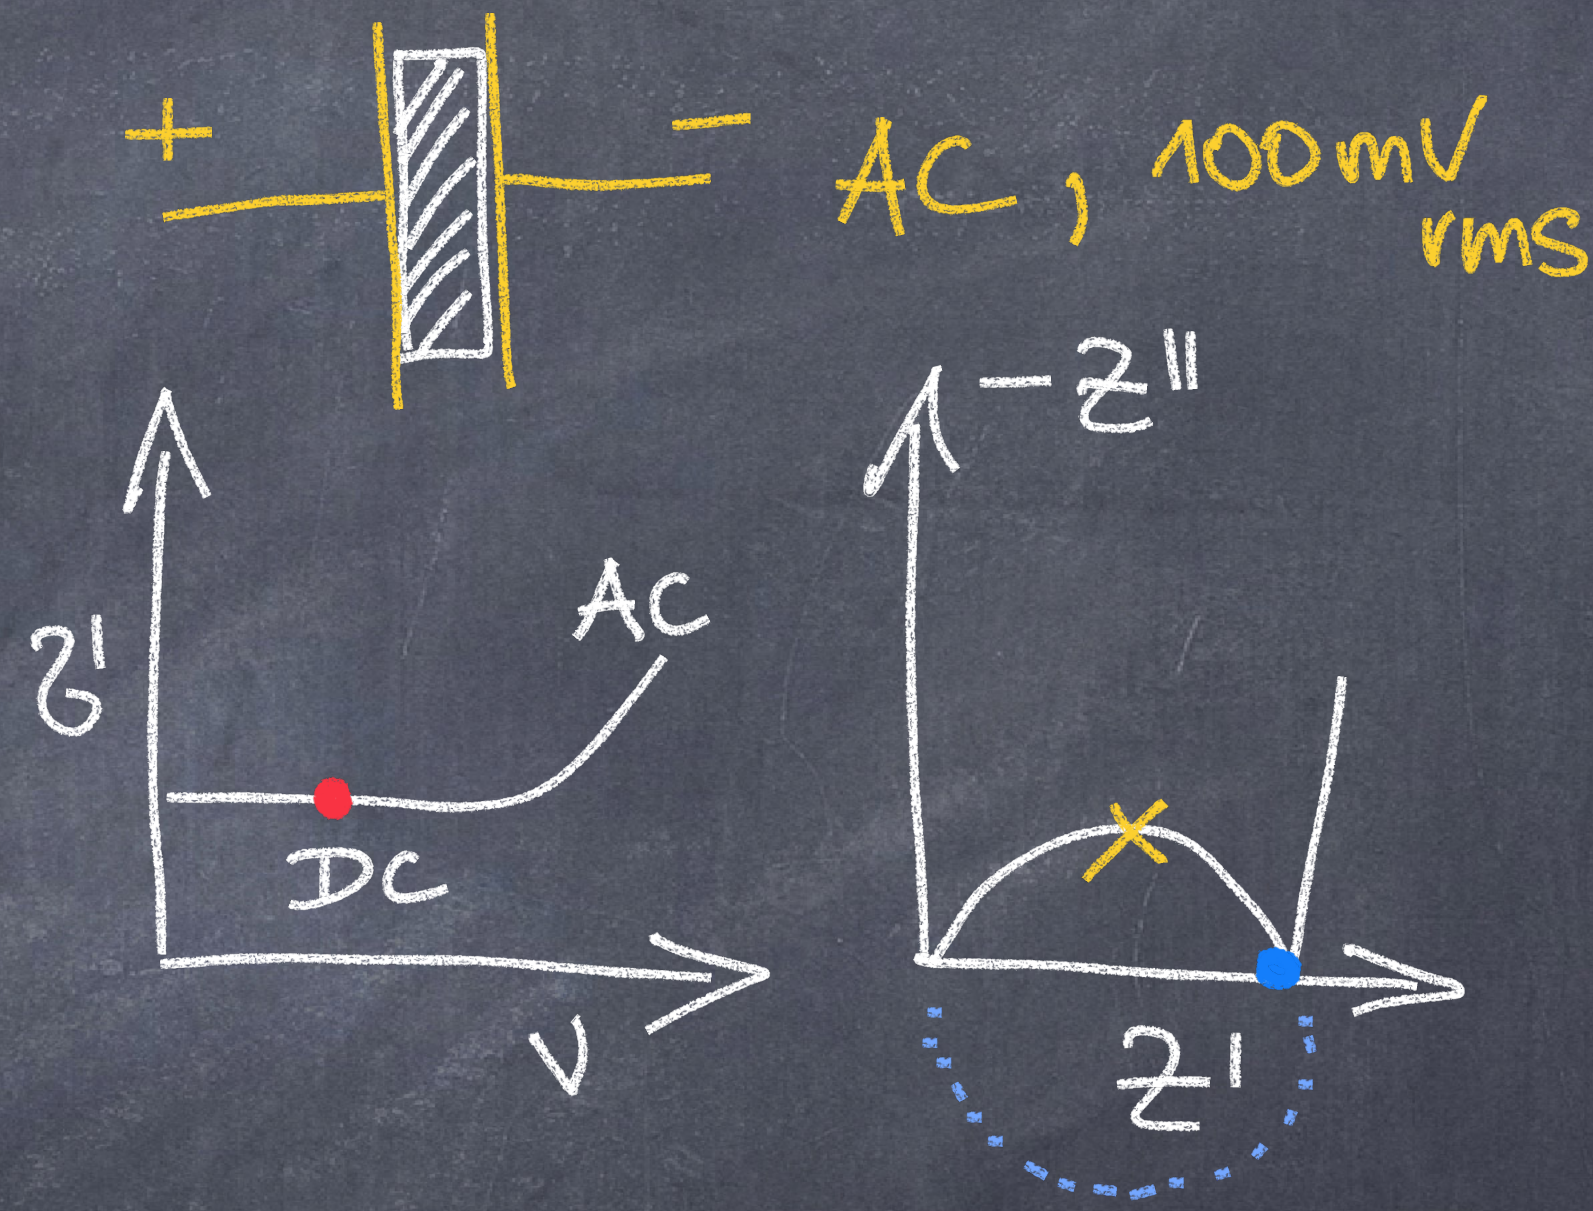 + − AC, 100mV
rms
−Z''
AC
σ'
DC
ν
Z'